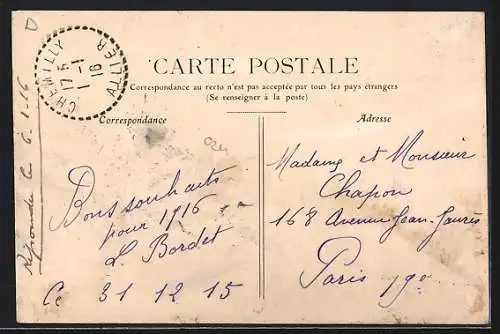 D
CHEMILLY
17 5
1 - 1
16
ALLIER
CARTE POSTALE
Correspondance au recto n'est pas acceptée par tous les pays étrangers
(Se renseigner à la poste)
Correspondance
Bons souhaits
pour 1916
L. Bordet
Ce 31 12 15
Répondu le 6.1.16
Adresse
Madame et Monsieur
Chapon
168 Avenue Jean-Jaurès
Paris 19e